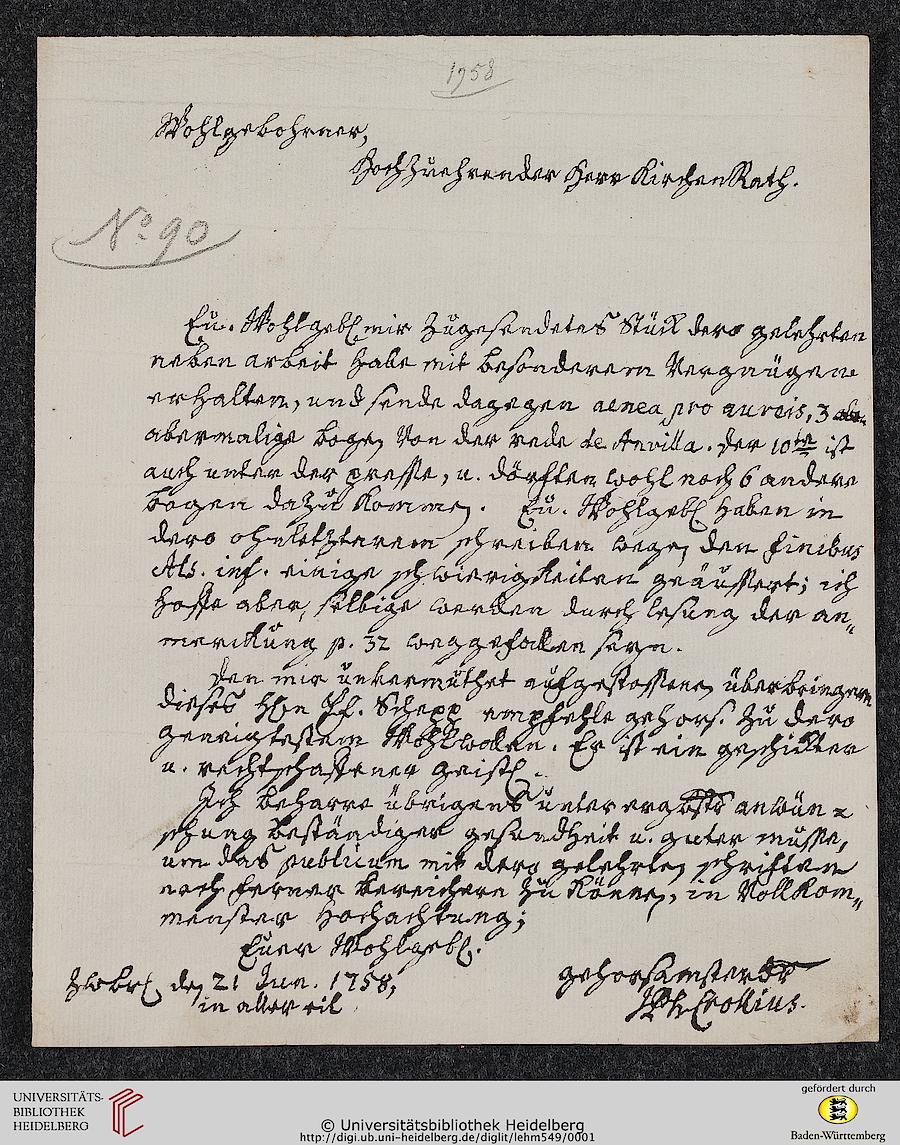 1758
Wohlgebohrner,
HochZuehrender Herr KirchenRath.
No. 90
Eu. Wohlgebl mir Zugesendetes Stück dero gelehrten
neben arbeit habe mit besonderem Vergnügen
erhalten, und sende dagegen aenea pro aureis, 3
abermalige bogen von der rede de Anvilla. Der 10te ist
auch unter der presse, u. dörfften wohl noch 6 andere
bogen dazu kommen. Eu. Wohlgebl haben in
dero ohnletzterem schreiben wegen den finibus
Als. inf. einige schwierigkeiten geäussert; ich
hoffe aber, selbige werden durch lesung der an„
merckung p. 32 weggefallen seyn.
Den mir unvermuthet aufgestossenen überbringern
dieses Hn Pf. Schepp empfehle gehors. Zu dero
geneigtestem Wohlwollen. Er ist ein geschickter
u. rechtschaffener geistl.
Ich beharre übrigens unter anwün=
schung beständiger gesundheit u. guter musse,
um das publicum mit dero gelehrten schriften
noch ferner bereichern Zu können, in Vollkom„
menster Hochachtung;
Euer Wohlgebl.
Zwbr. den 21 Jun. 1758,
in aller eil
gehorsamster Dr
Crollius.
UNIVERSITÄTS-
BIBLIOTHEK
HEIDELBERG
© Universitätsbibliothek Heidelberg
http://digi.ub.uni-heidelberg.de/diglit/lehm549/0001
gefördert durch
Baden-Württemberg